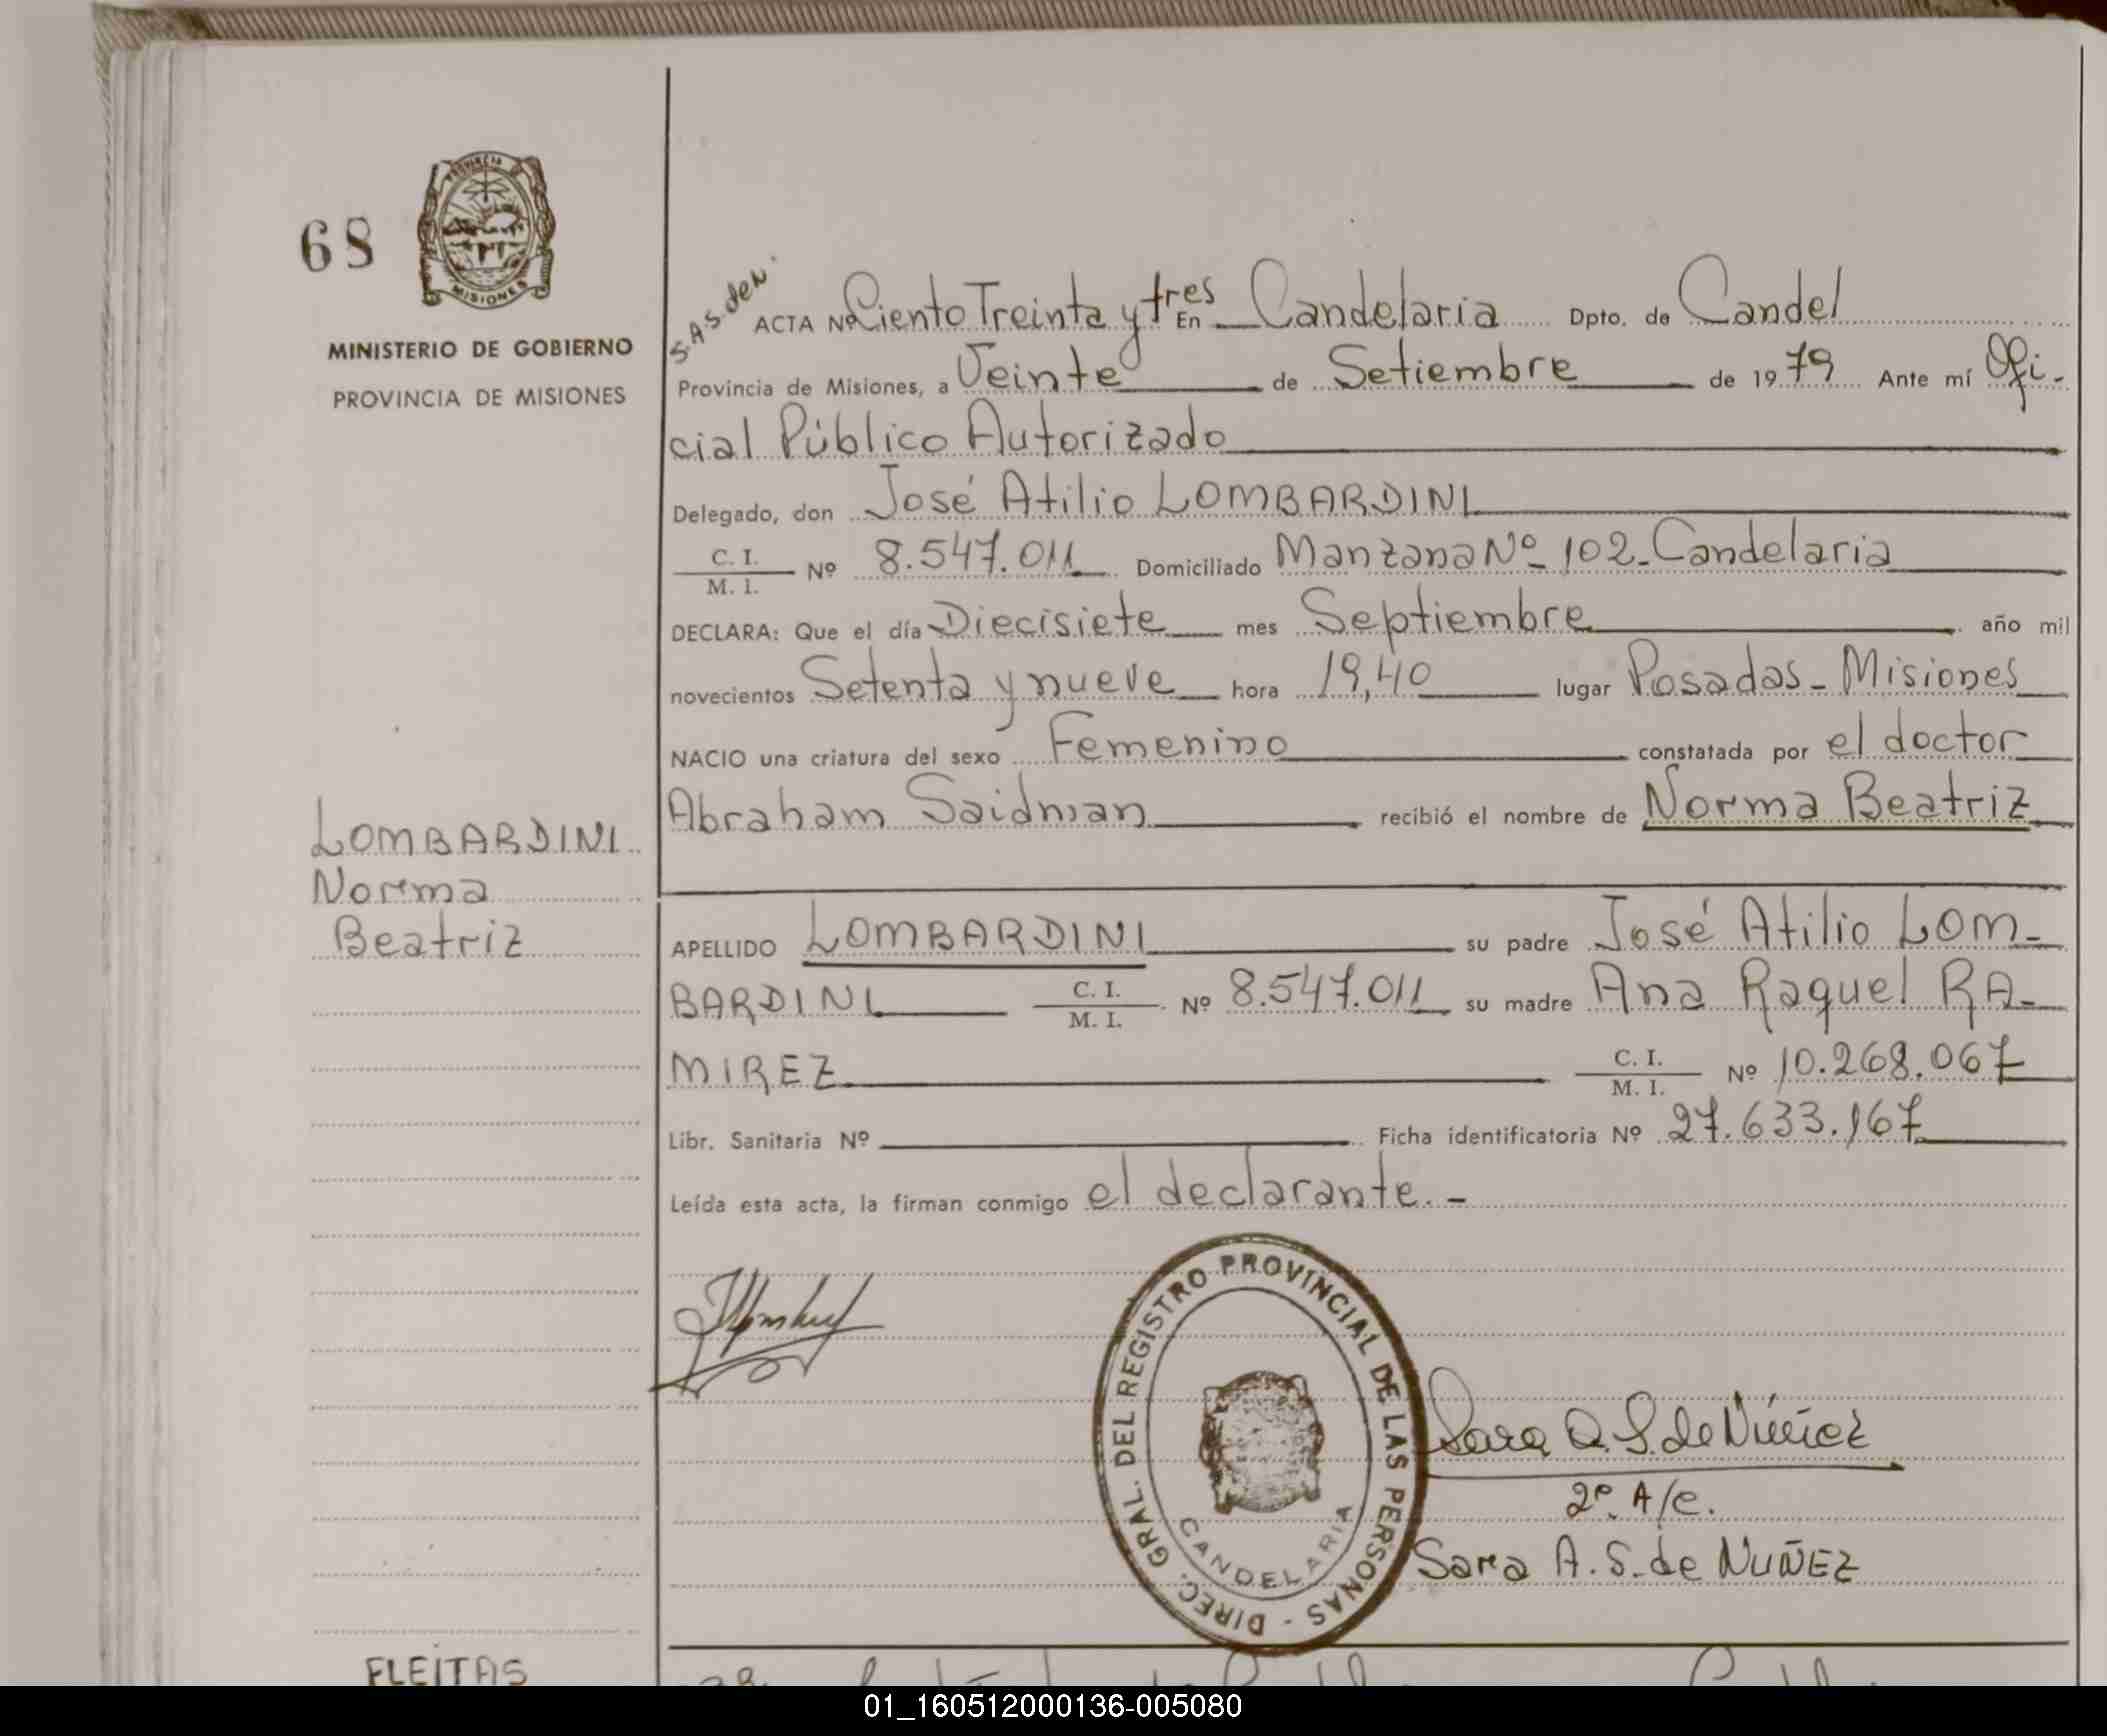 68
PROVINCIA
MISIONES
MINISTERIO DE GOBIERNO
PROVINCIA DE MISIONES
S.A.S. de N.
ACTA Nº Ciento Treinta y tres En Candelaria Dpto. de Candel
Provincia de Misiones, a Veinte de Setiembre de 1979 Ante mí Ofi-
cial Público Autorizado
Delegado, don José Atilio LOMBARDINI
C. I.
M. I. Nº 8.547.011 Domiciliado Manzana Nº 102-Candelaria
DECLARA: Que el día Diecisiete mes Septiembre año mil
novecientos Setenta y nueve hora 19,40 lugar Posadas - Misiones
NACIO una criatura del sexo Femenino constatada por el doctor
Abraham Saidman recibió el nombre de Norma Beatriz
LOMBARDINI
Norma
Beatriz
APELLIDO LOMBARDINI su padre José Atilio LOM-
BARDINI C. I.
M. I. Nº 8.547.011 su madre Ana Raquel RA-
MIREZ C. I.
M. I. Nº 10.268.067
Libr. Sanitaria Nº Ficha identificatoria Nº 27.633.167
Leída esta acta, la firman conmigo el declarante. -
DIREC. GRAL. DEL REGISTRO PROVINCIAL DE LAS PERSONAS -
CANDELARIA
Sara A. S. de Núñez
2º A/c.
Sara A. S. de NUÑEZ
FLEITAS
01_160512000136-005080